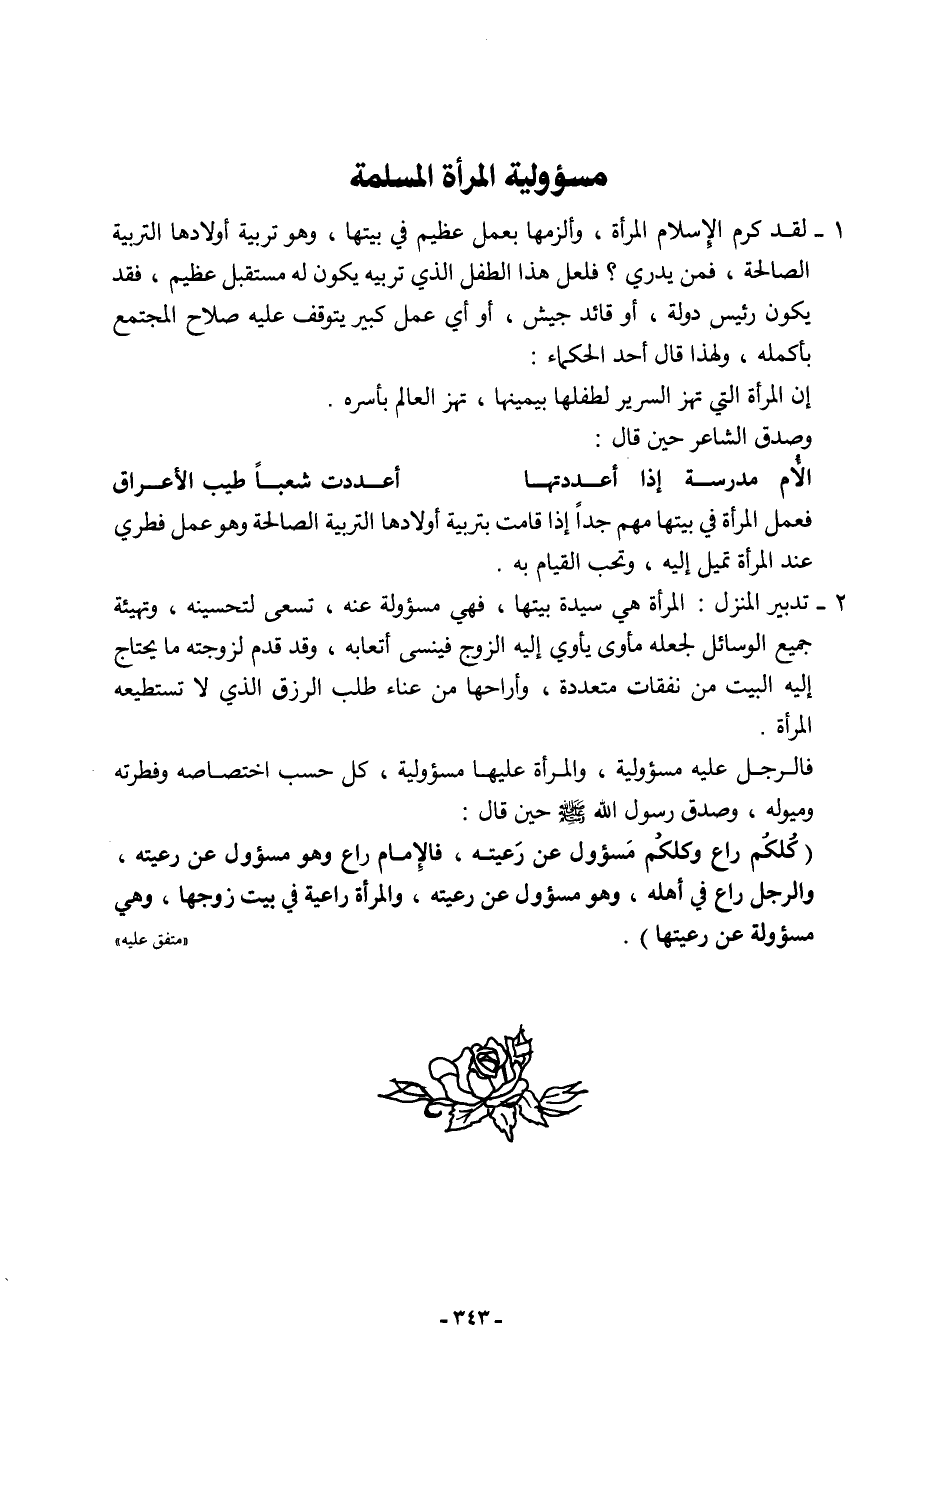 مسؤولية المرأة المسلمة
١ - لقد كرم الإسلام المرأة ، وألزمها بعمل عظيم في بيتها ، وهو تربية أولادها التربية
الصالحة ، فمن يدري ؟ فلعل هذا الطفل الذي تربيه يكون له مستقبل عظيم ، فقد
يكون رئيس دولة ، أو قائد جيش ، أو أي عمل كبير يتوقف عليه صلاح المجتمع
بأكمله ، ولهذا قال أحد الحكماء :
إن المرأة التي تهز السرير لطفلها بيمينها ، تهز العالم بأسره .
وصدق الشاعر حين قال :
الأُم مدرسة إذا أعددتها أعددت شعباً طيب الأعراق
فعمل المرأة في بيتها مهم جداً إذا قامت بتربية أولادها التربية الصالحة وهو عمل فطري
عند المرأة تميل إليه ، وتحب القيام به .
٢ - تدبير المنزل : المرأة هي سيدة بيتها ، فهي مسؤولة عنه ، تسعى لتحسينه ، وتهيئة
جميع الوسائل لجعله مأوى يأوي إليه الزوج فينسى أتعابه ، وقد قدم لزوجته ما يحتاج
إليه البيت من نفقات متعددة ، وأراحها من عناء طلب الرزق الذي لا تستطيعه
المرأة .
فالرجل عليه مسؤولية ، والمرأة عليها مسؤولية ، كل حسب اختصاصه وفطرته
وميوله ، وصدق رسول الله ﷺ حين قال :
( كُلكُم راع وكلكُم مَسؤول عن رَعيته ، فالإمام راع وهو مسؤول عن رعيته ،
والرجل راع في أهله ، وهو مسؤول عن رعيته ، والمرأة راعية في بيت زوجها ، وهي
مسؤولة عن رعيتها ) . «متفق عليه»
- ٣٤٣ -